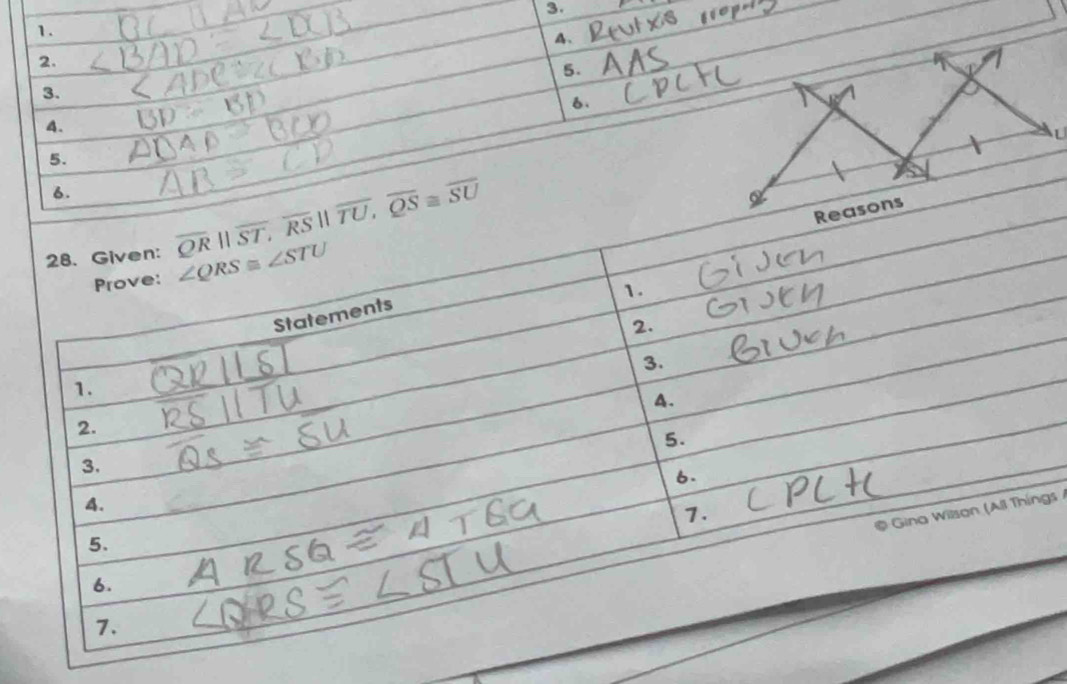 1. BC || AD
2. <BAD ≅ <DCB
3. <ADB ≅ <CBD
4. BD ≅ BD
5.
6. AB ≅ CD
3.
4.
5. AAS
6. CPCTC
28. Given: QR || ST, RS || TU, QS ≅ SU
Prove: ∠QRS ≅ ∠STU
Statements Reasons
1. QR || ST 1. Given
2. RS || TU 2. Given
3. QS ≅ SU 3. Given
4. 4.
5. 5.
6. Δ RSQ ≅ Δ 6.
7. <QRS ≅ <STU 7. CPCTC
© Gina Wilson (All Things